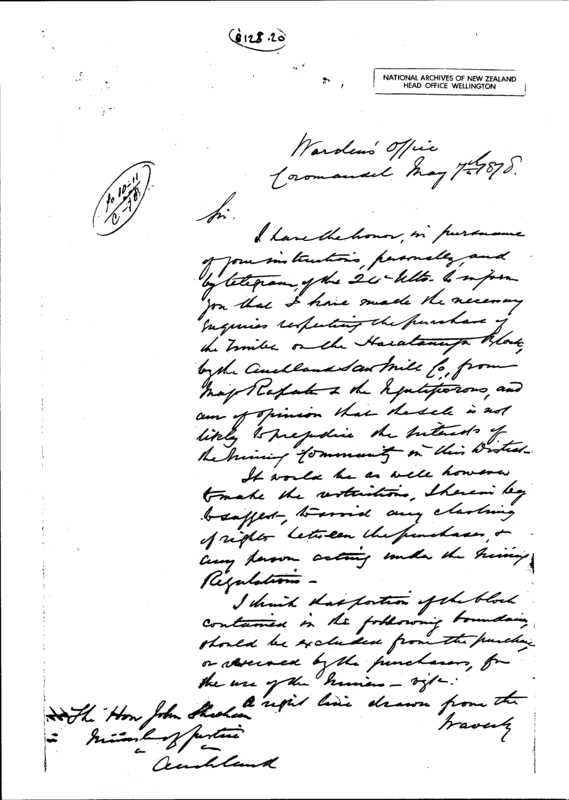 B128.20
NATIONAL ARCHIVES OF NEW ZEALAND
HEAD OFFICE WELLINGTON
Wardens' Office
Coromandel May 7th 1878.
Sir.
I have the honor, in pursuance
of your instructions, personally, and
by telegram, of the 24th Ulto. to inform
you that I have made the necessary
enquiries respecting the purchase of
the Timber on the Harataunga Block,
by the Auckland Saw Mill Co, from
Major Ropata & the Ngatiporous, and
am of opinion that the sale is not
likely to prejudice the Interests of
the Mining Community in this District.
It would be as well however
to make the restrictions, I herein beg
to suggest, to avoid any clashing
of rights between the purchasers, &
any person acting under the Mining
Regulations -
I think that portion of the block
contained in the following boundaries
should be excluded from the purchase,
or reserved by the purchasers, for
the use of the Miners - vizt:
A right line drawn from the
The Hon John Sheehan
Minister of Justice
Auckland